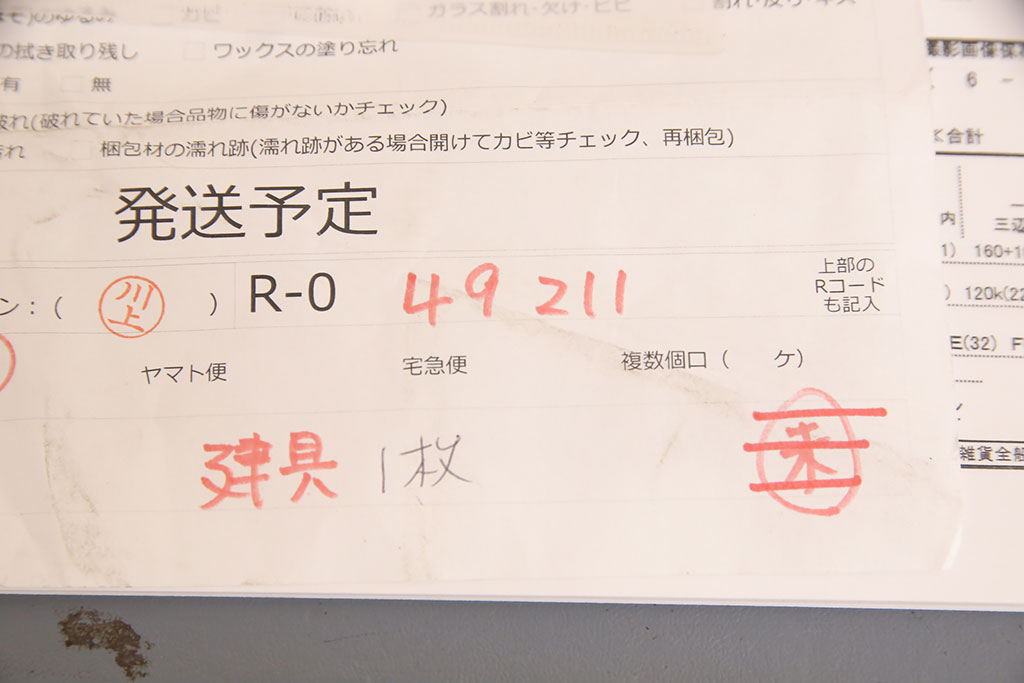 カビ
ガラス割れ・欠け・ヒビ
の拭き取り残し ワックスの塗り忘れ
有 無
破れ(破れていた場合品物に傷がないかチェック)
汚れ 梱包材の濡れ跡(濡れ跡がある場合開けてカビ等チェック、再梱包)
発送予定
ン:( 川上 ) R-0 49211 上部の
Rコード
も記入
ヤマト便 宅急便 複数個口( ケ)
建具 1枚 未
撮影画像保
6 -
合計
内
三辺
1) 160+1
) 120k(22
E(32) F
雑貨全般